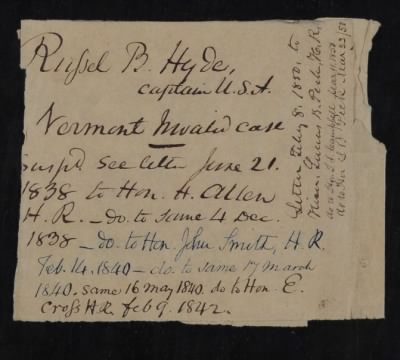 Russel B. Hyde,
captain U.S.A.
Vermont Invalid case
Susp'd See letter June 21.
1838 to Hon. H. Allen
H. R. – do. to same 4 Dec.
1838 – do. to Hon. John Smith, H. R.
Feb. 14. 1840 – do. to same 17 march
1840. same 16 may 1840. do to Hon. E.
Cross H.R. feb 9. 1842.
Letter July 8. 1850, to
Hon. Lucius B. Peck, H. R.